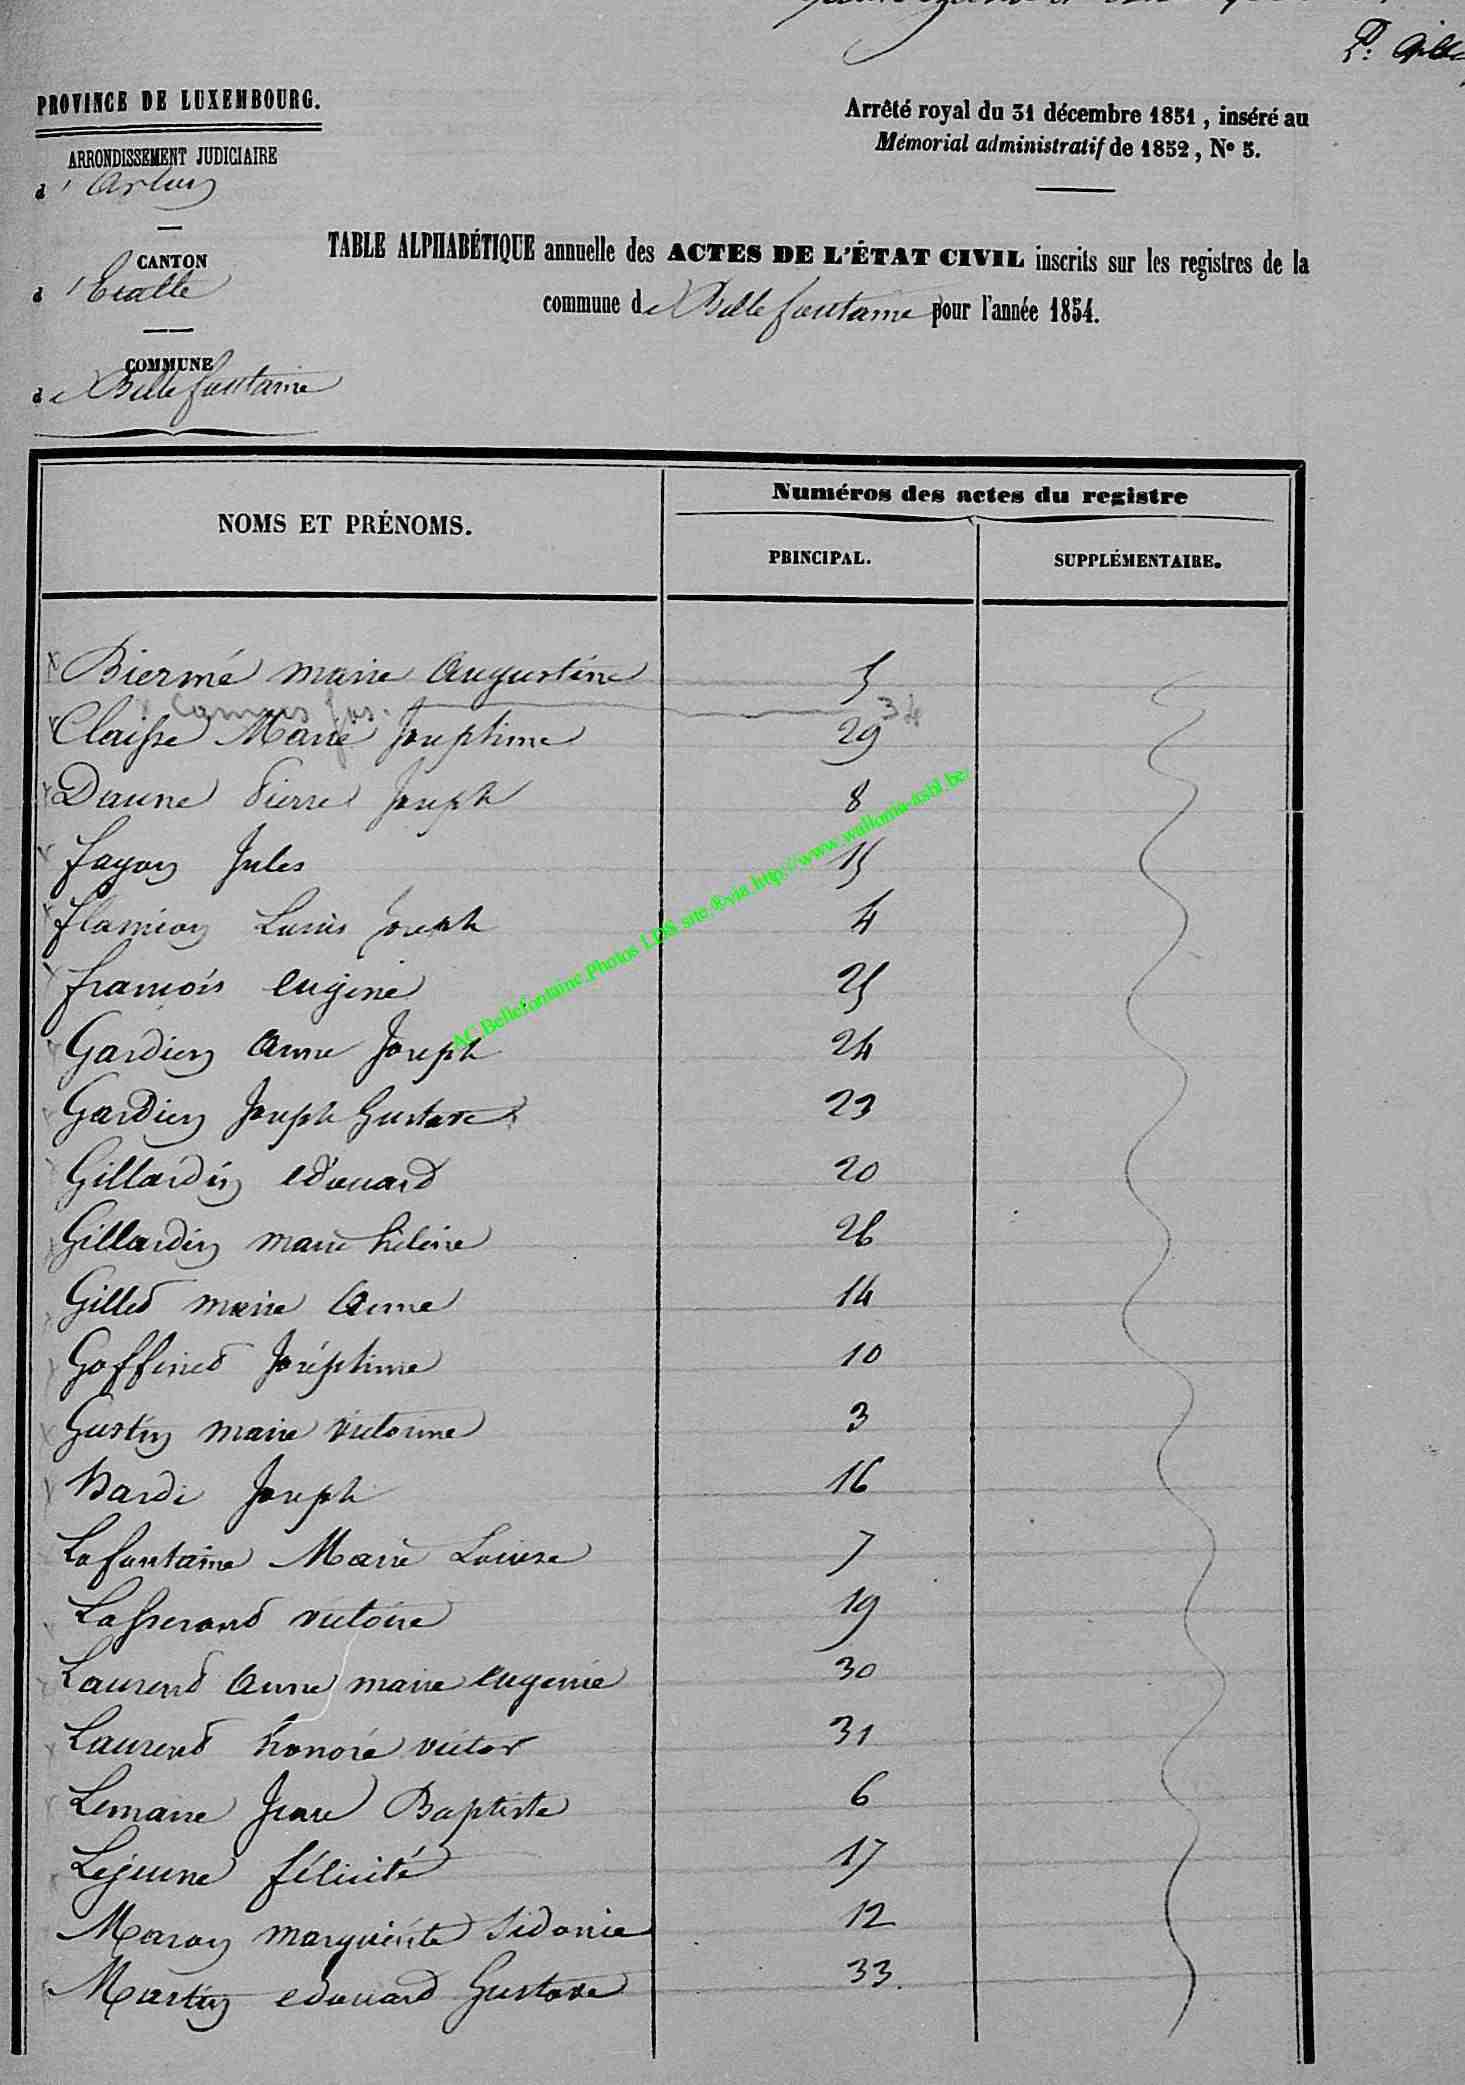 PROVINCE DE LUXEMBOURG.
Arrêté royal du 31 décembre 1851, inséré au
Mémorial administratif de 1852, N° 5.
ARRONDISSEMENT JUDICIAIRE
d'Arlon
CANTON
d'Etalle
COMMUNE
de Bellefontaine
TABLE ALPHABÉTIQUE annuelle des ACTES DE L'ÉTAT CIVIL inscrits sur les registres de la
commune de Bellefontaine pour l'année 1854.
NOMS ET PRÉNOMS.
Numéros des actes du registre
PRINCIPAL.
SUPPLÉMENTAIRE.
Biermé marie Augustine 5
Camus Jos. 34
Claisse Marie Josephine 29
Daune Pierre Joseph 8
fayon Jules 15
flamion Louis Joseph 4
francois eugène 25
Gardien Anne Joseph 24
Gardien Joseph Gustave 23
Gillardin edouard 20
Gillardin marie hélène 26
Gilles marie Anne 14
Goffined Joséphine 10
Gustin marie victorine 3
Hardi Joseph 16
Lafontaine Marie Louise 7
Lasserand victoire 19
Laurend Anne marie eugenie 30
Laurend honoré victor 31
Lemaire Jean Baptiste 6
Lejeune félicité 17
Maron marguérite Sidonie 12
Martin edouard Gustave 33.
AC Bellefontaine Photos LDS site ®via http://www.wallonia-asbl.be/